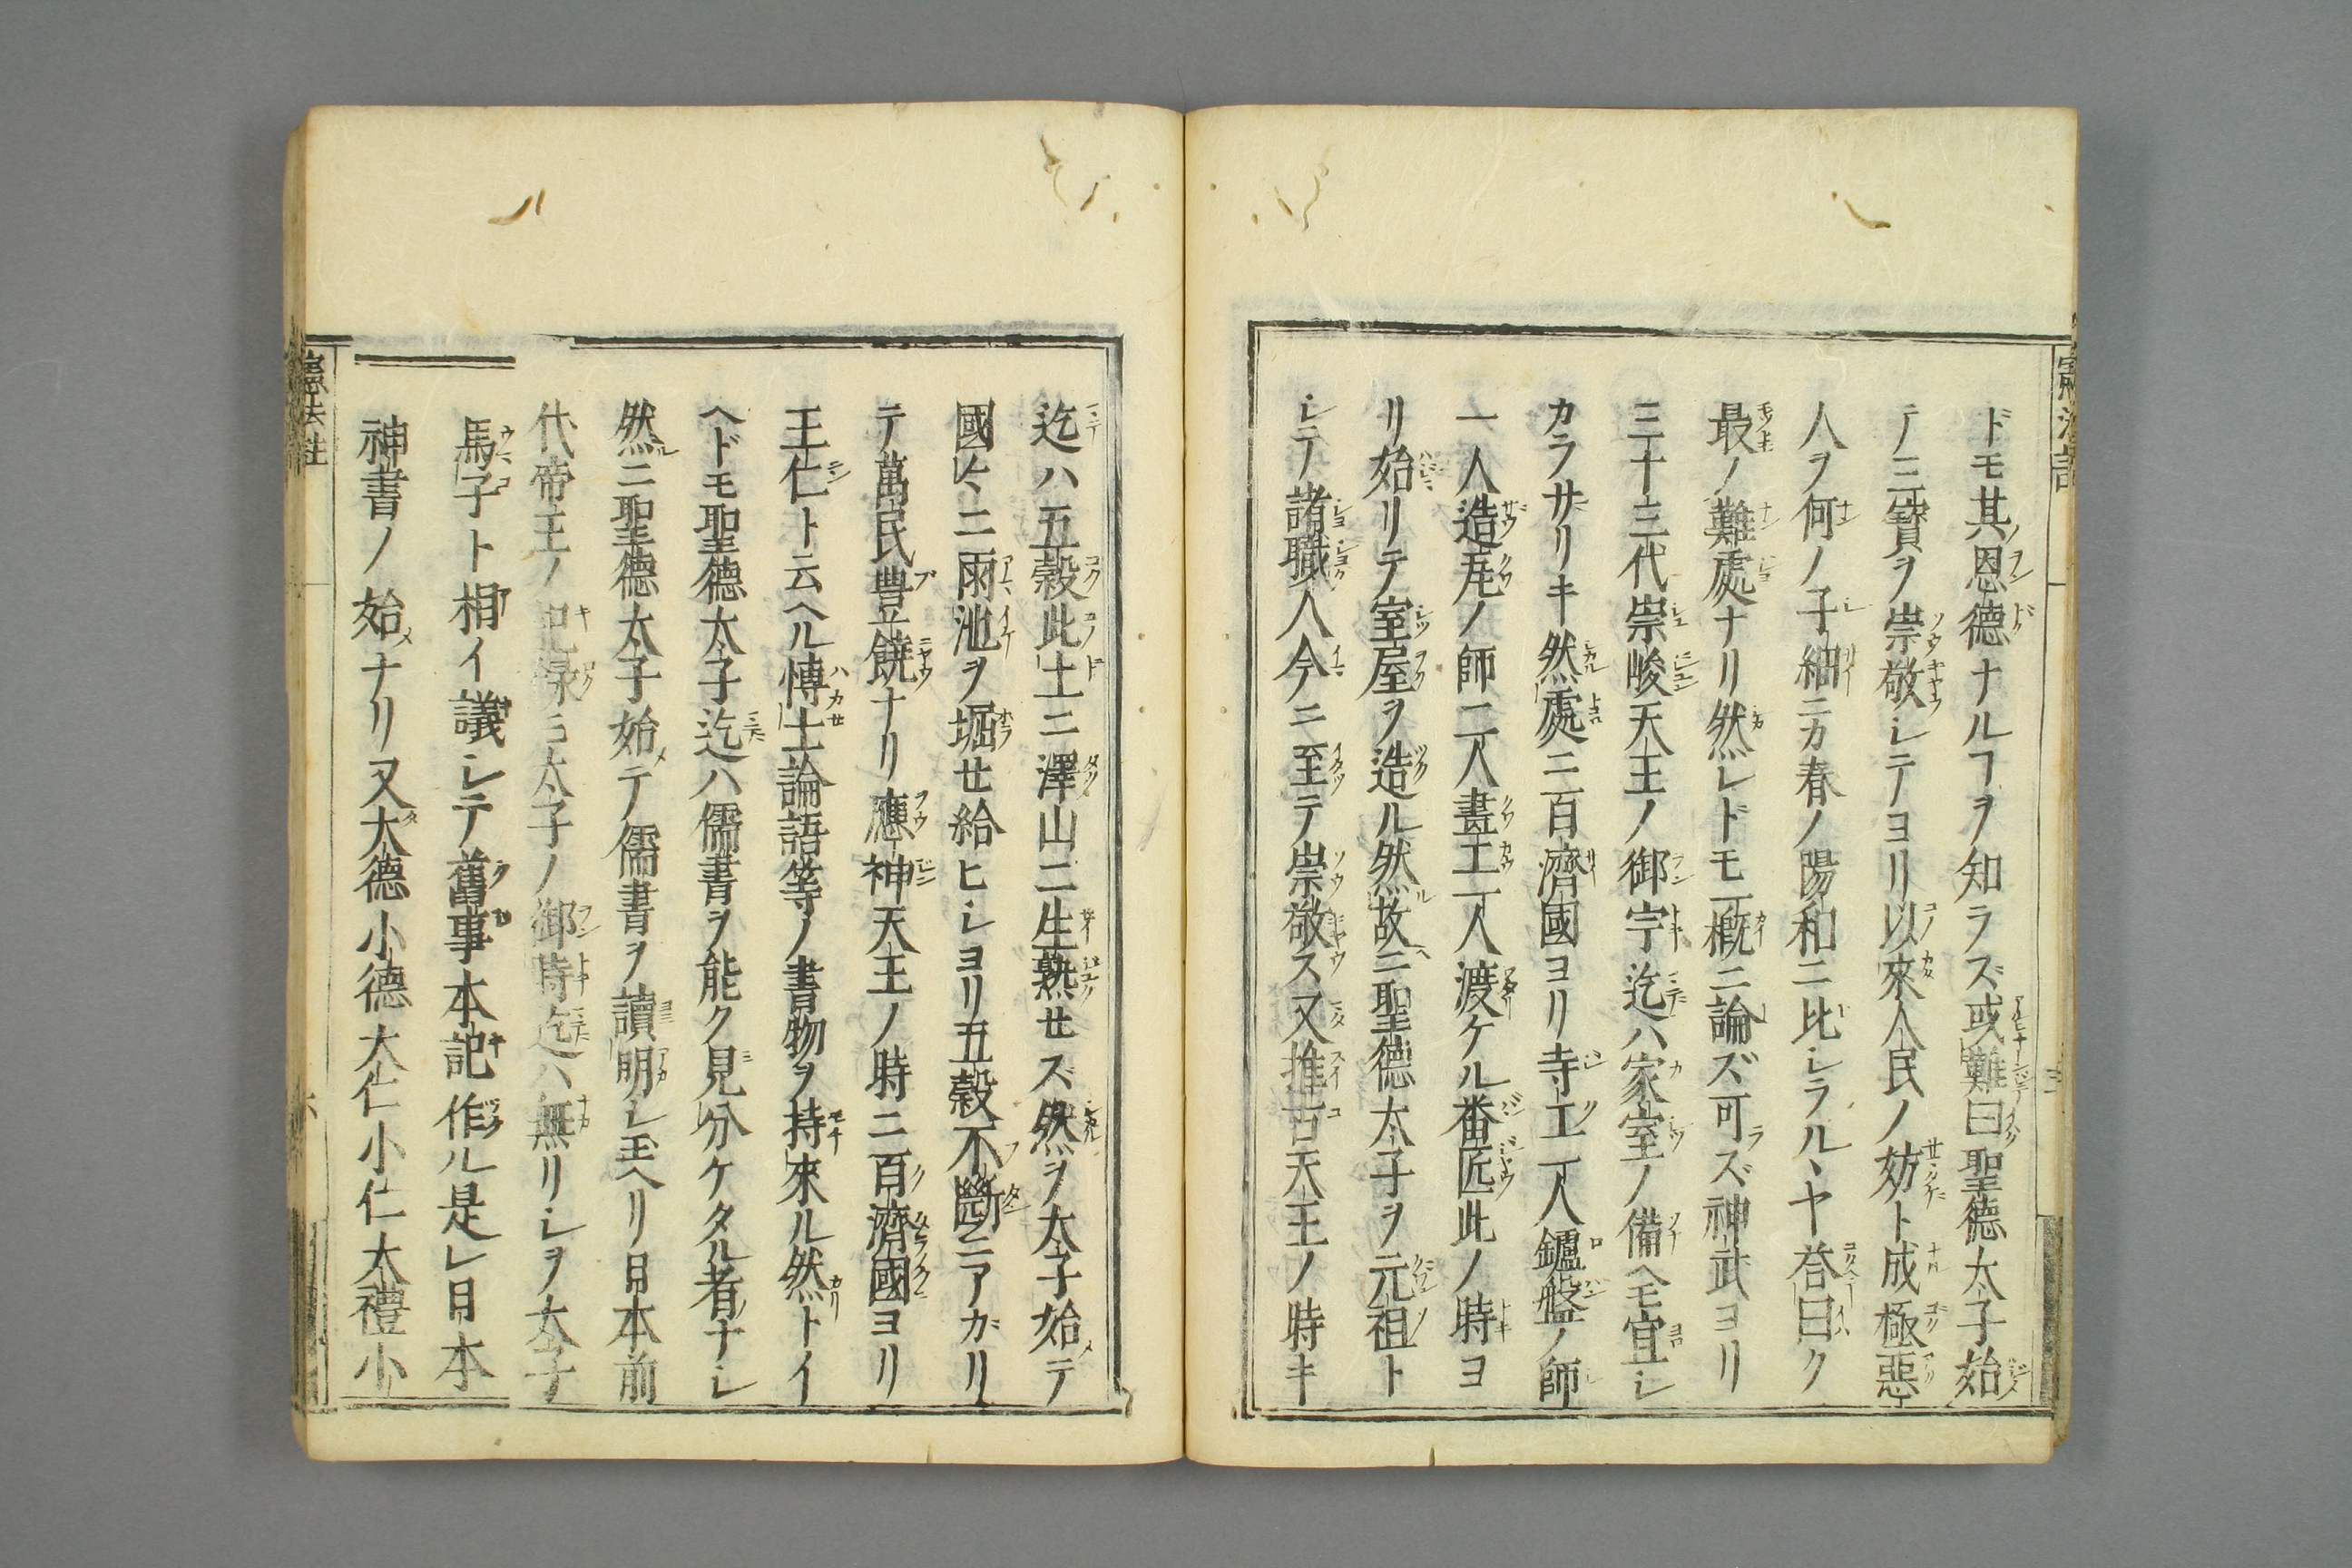 ドモ其恩德ナルヿヲ知ラズ或難曰聖德太子始
テ三寶ヲ崇敬シテヨリ以來人民ノ妨ト成極惡
人ヲ何ノ子細ニカ春ノ陽和ニ比シラルヽヤ答曰ク
最ノ難處ナリ然レドモ一概ニ論ズ可ラズ神武ヨリ
三十三代崇峻天王ノ御宇迄ハ家室ノ備ヘモ宜シ
カラザリキ然處ニ百濟國ヨリ寺工一人鑪盤ノ師
一人造瓦ノ師二人畫工一人渡ケル番匠此ノ時ヨ
リ始リテ室屋ヲ造ル然故ニ聖德太子ヲ元祖ト
シテ諸職人今ニ至テ崇敬ス又推古天王ノ時キ
迄ハ五穀此土ニ澤山ニ生熟セズ然ヲ太子始テ
國〻ニ雨池ヲ堀せ給ヒシヨリ五穀不斷ニアガリ
テ萬民豊饒ナリ應神天王ノ時ニ百濟國ヨリ
王仁ト云ヘル博士論語等ノ書物ヲ持來ル然トイ
ヘドモ聖德太子迄ハ儒書ヲ能ク見分ケタル者ナシ
然ニ聖德太子始テ儒書ヲ讀明シ玉ヘリ日本前
代帝王ノ記録モ太子ノ御時迄ハ無リシヲ太子
馬子ト相イ議シテ舊事本記作ル是レ日本
神書ノ始ナリ又大德小德大仁小仁大禮小
憲法註